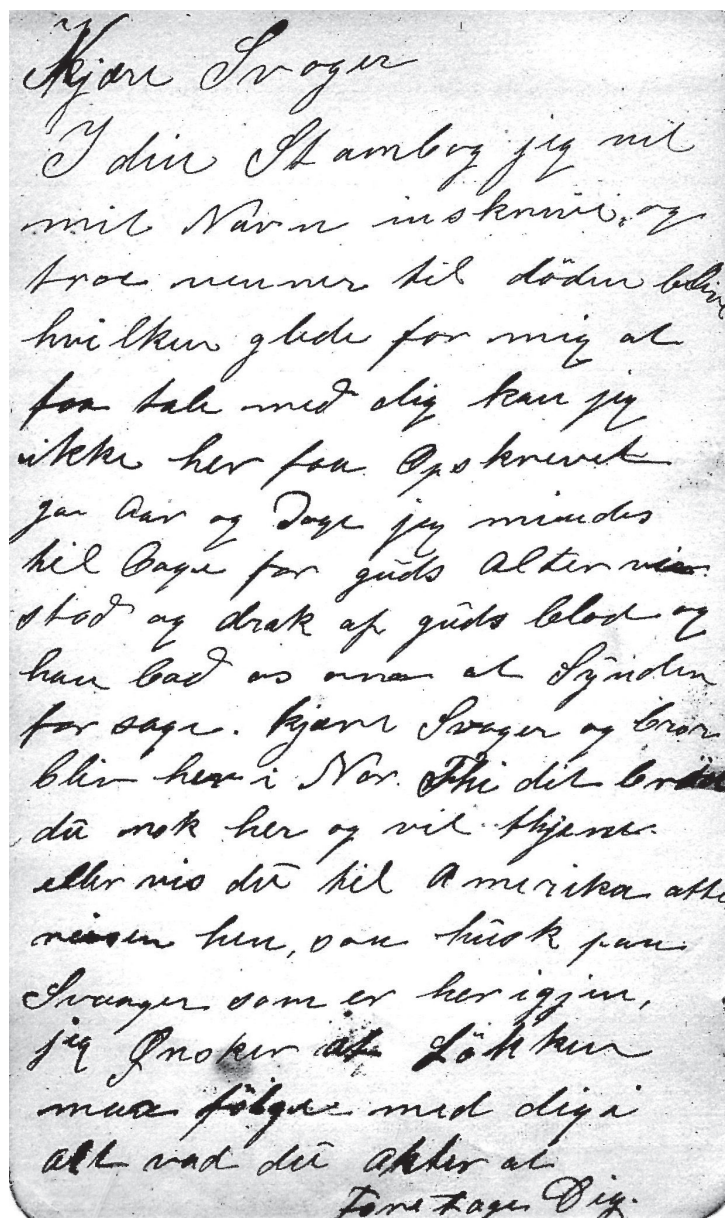 Kjære Svoger
I din Stambog jeg vil
mit Navn inskrive, og
troe venner til döden blive
hvilken glede for mig at
faa tale med dig kan jeg
ikke her faa Opskrevet
gaa Aar og Dage jeg mindes
til bage for guds Alter vie
stod og drak af guds blod og
han bad os ova at Synden
for sage. kjære Svoger og bror
bliv her i Nor. Thi det bröd
du nok her og vil thjene
eller vis du til Amerika atte
reisen hen, saa husk paa
Svaager som er her igjen,
jeg Ønsker at Lökken
maa fölge med dig i
alt vad du akter at
Foretage Dig.